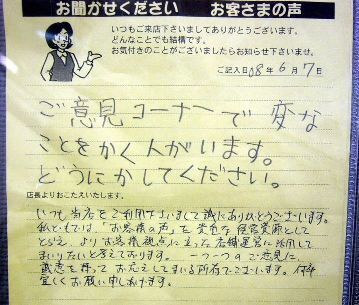 お聞かせください　お客さまの声
いつもご来店下さいましてありがとうございます。
どんなことでも結構です。
お気付きのことがございましたらお知らせ下さいませ。
ご記入日 08年6月7日
ご意見コーナーで変な
ことをかく人がいます。
どうにかしてください。
店長よりおこたえいたします。
いつも当店をご利用下さいまして誠にありがとうございます。
私どもでは、「お客様の声」を貴重な経営資源として
とらえ、よりお客様視点に立った店舗運営に活用して
まいりたいと考えております。一つ一つのご意見に、
誠意を持ってお応えしてまいる所存でございます。何卒
宜しくお願い申しあげます。